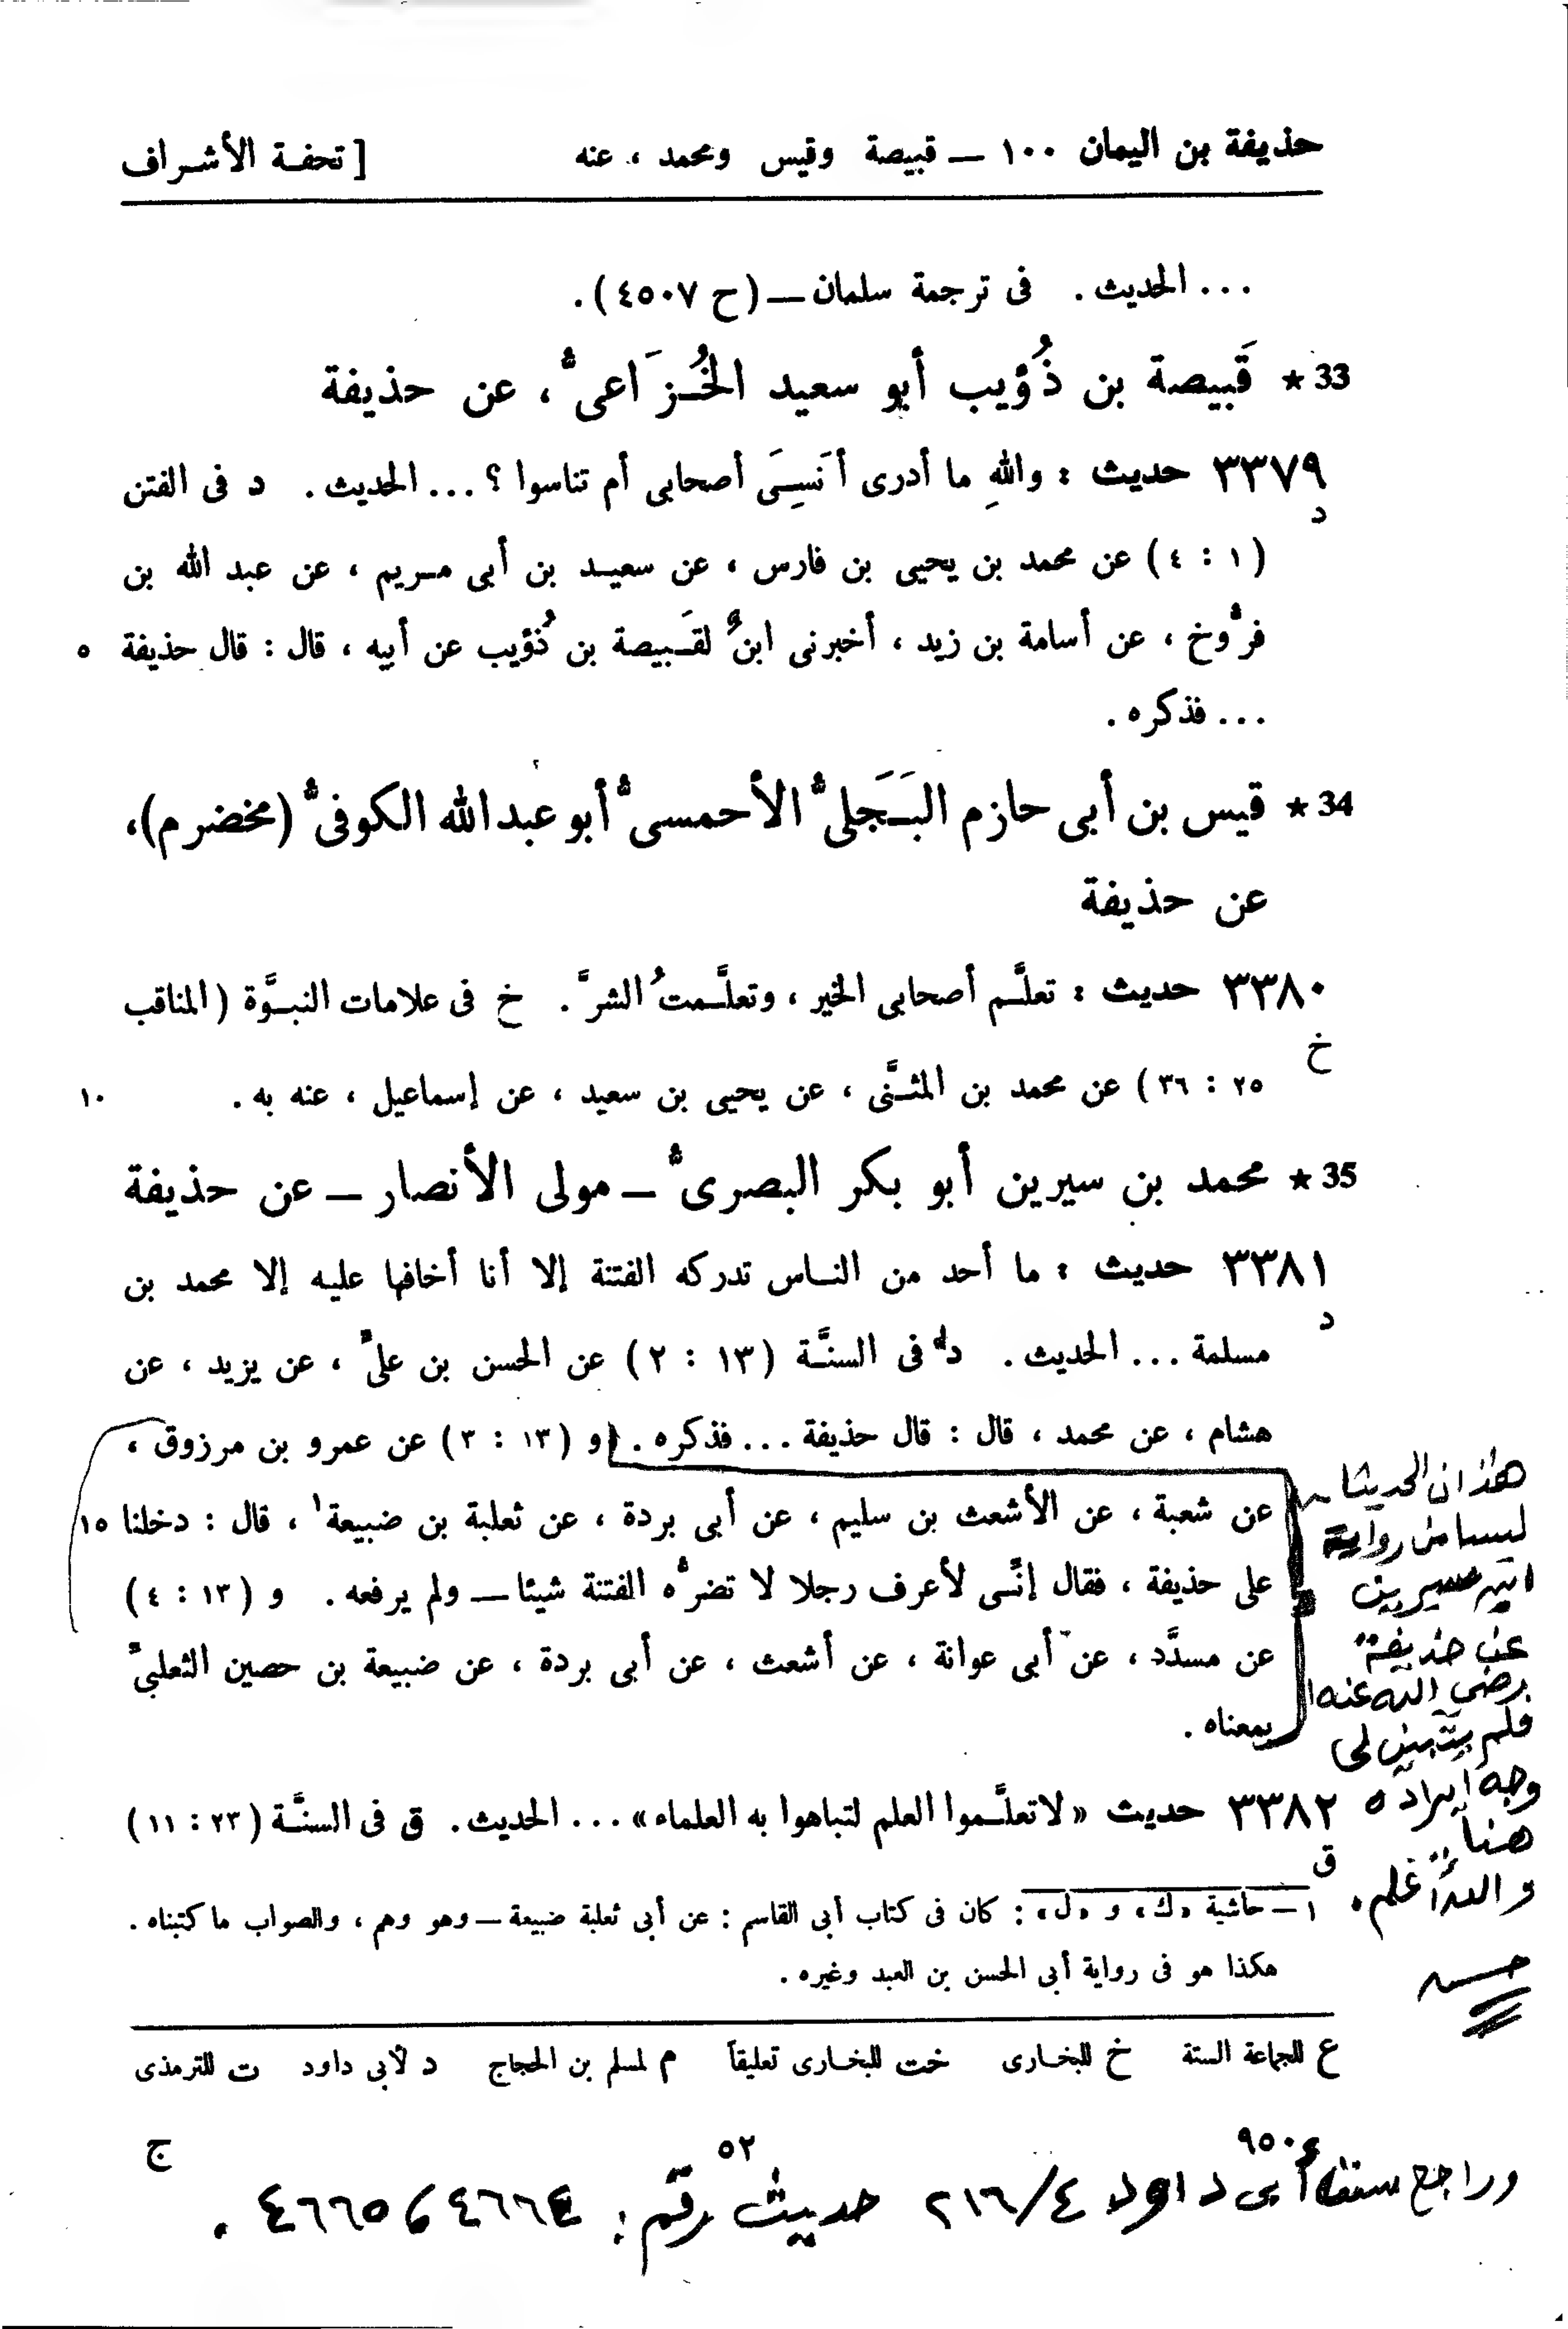 حذيفة بن اليمان ١٠٠ — قبيصة وقيس ومحمد ، عنه [ تحفة الأشراف
... الحديث . فى ترجمة سلمان — (ح ٤٥٠٧) .
33 ★ قَبيصة بن ذُؤيب أبو سعيد الخُزَاعىُّ ، عن حذيفة
٣٣٧٩ حديث : واللهِ ما أدرى أَنَسِىَ أصحابى أم تناسوا ؟ ... الحديث . د فى الفتن
د
(١ : ٤) عن محمد بن يحيى بن فارس ، عن سعيد بن أبى مريم ، عن عبد الله بن
فرُّوخ ، عن أسامة بن زيد ، أخبرنى ابنٌ لقَبيصة بن ذُؤيب عن أبيه ، قال : قال حذيفة ٥
... فذكره .
34 ★ قيس بن أبى حازم البَجَلىُّ الأحمسىُّ أبو عبد الله الكوفىُّ (مخضرم)،
عن حذيفة
٣٣٨٠ حديث : تعلَّم أصحابى الخير ، وتعلَّمتُ الشرَّ . خ فى علامات النبوَّة (المناقب
خ
٢٥ : ٣٦) عن محمد بن المثنَّى ، عن يحيى بن سعيد ، عن إسماعيل ، عنه به . ١٠
35 ★ محمد بن سيرين أبو بكر البصرىُّ — مولى الأنصار — عن حذيفة
٣٣٨١ حديث : ما أحد من الناس تدركه الفتنة إلا أنا أخافها عليه إلا محمد بن
د
مسلمة ... الحديث . د فى السنَّة (١٣ : ٢) عن الحسن بن علىٍّ ، عن يزيد ، عن
هشام ، عن محمد ، قال : قال حذيفة ... فذكره . و (١٣ : ٣) عن عمرو بن مرزوق ،
عن شعبة ، عن الأشعث بن سليم ، عن أبى بردة ، عن ثعلبة بن ضبيعة١ ، قال : دخلنا ١٥
على حذيفة ، فقال إنِّى لأعرف رجلا لا تضرُّه الفتنة شيئا — ولم يرفعه . و (١٣ : ٤)
عن مسدَّد ، عن أبى عوانة ، عن أشعث ، عن أبى بردة ، عن ضبيعة بن حصين الثعلبىِّ
بمعناه .
هذان الحديثا
ليسا من رواية
ابن سيرين
عن حذيفة
رضى الله عنه
فلم يتبين لى
وجه ايراده
هنا
والله أعلم .
٣٣٨٢ حديث «لا تعلَّموا العلم لتباهوا به العلماء» ... الحديث . ق فى السنَّة (٢٣ : ١١)
ق
١ — حاشية «ك» و «ل» : كان فى كتاب أبى القاسم : عن أبى ثعلبة ضبيعة — وهو وهم ، والصواب ما كتبناه .
هكذا هو فى رواية أبى الحسن بن العبد وغيره .
ع للجماعة الستة خ للبخارى خت للبخارى تعليقاً م لمسلم بن الحجاج د لأبى داود ت للترمذى
٥٢ ج
وراجع سنن أبى داود ٢١٦/٤ حديث رقم : ٤٦٦٤ ، ٤٦٦٥ .